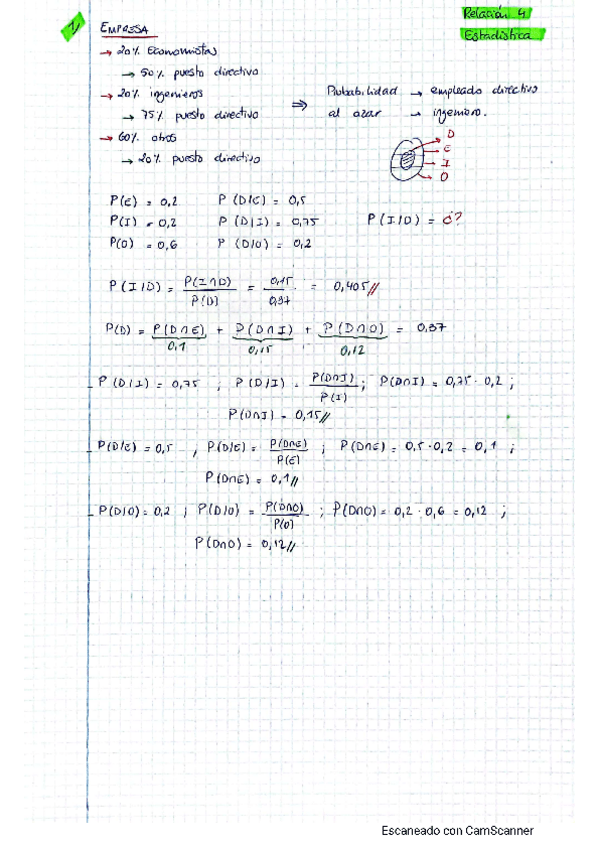 Relación 4
Estadística
1) EMPRESA
→ 20% Economistas
→ 50% puesto directivo
→ 20% ingenieros
→ 75% puesto directivo
→ 60% otros
→ 20% puesto directivo
⇒ Probabilidad → empleado directivo
al azar → ingeniero.
D
E
I
O
P(E) = 0,2 P(D/E) = 0,5
P(I) = 0,2 P(D/I) = 0,75 P(I/D) = ¿?
P(O) = 0,6 P(D/O) = 0,2
P(I/D) = P(I∩D)/P(D) = 0,15/0,37 = 0,405//
P(D) = P(D∩E) + P(D∩I) + P(D∩O) = 0,37
0,1 0,15 0,12
- P(D/I) = 0,75 ; P(D/I) = P(D∩I)/P(I) ; P(D∩I) = 0,75 · 0,2 ;
P(D∩I) = 0,15//
- P(D/E) = 0,5 , P(D/E) = P(D∩E)/P(E) ; P(D∩E) = 0,5 · 0,2 = 0,1 ;
P(D∩E) = 0,1//
- P(D/O) = 0,2 ; P(D/O) = P(D∩O)/P(O) ; P(D∩O) = 0,2 · 0,6 = 0,12 ;
P(D∩O) = 0,12//
Escaneado con CamScanner